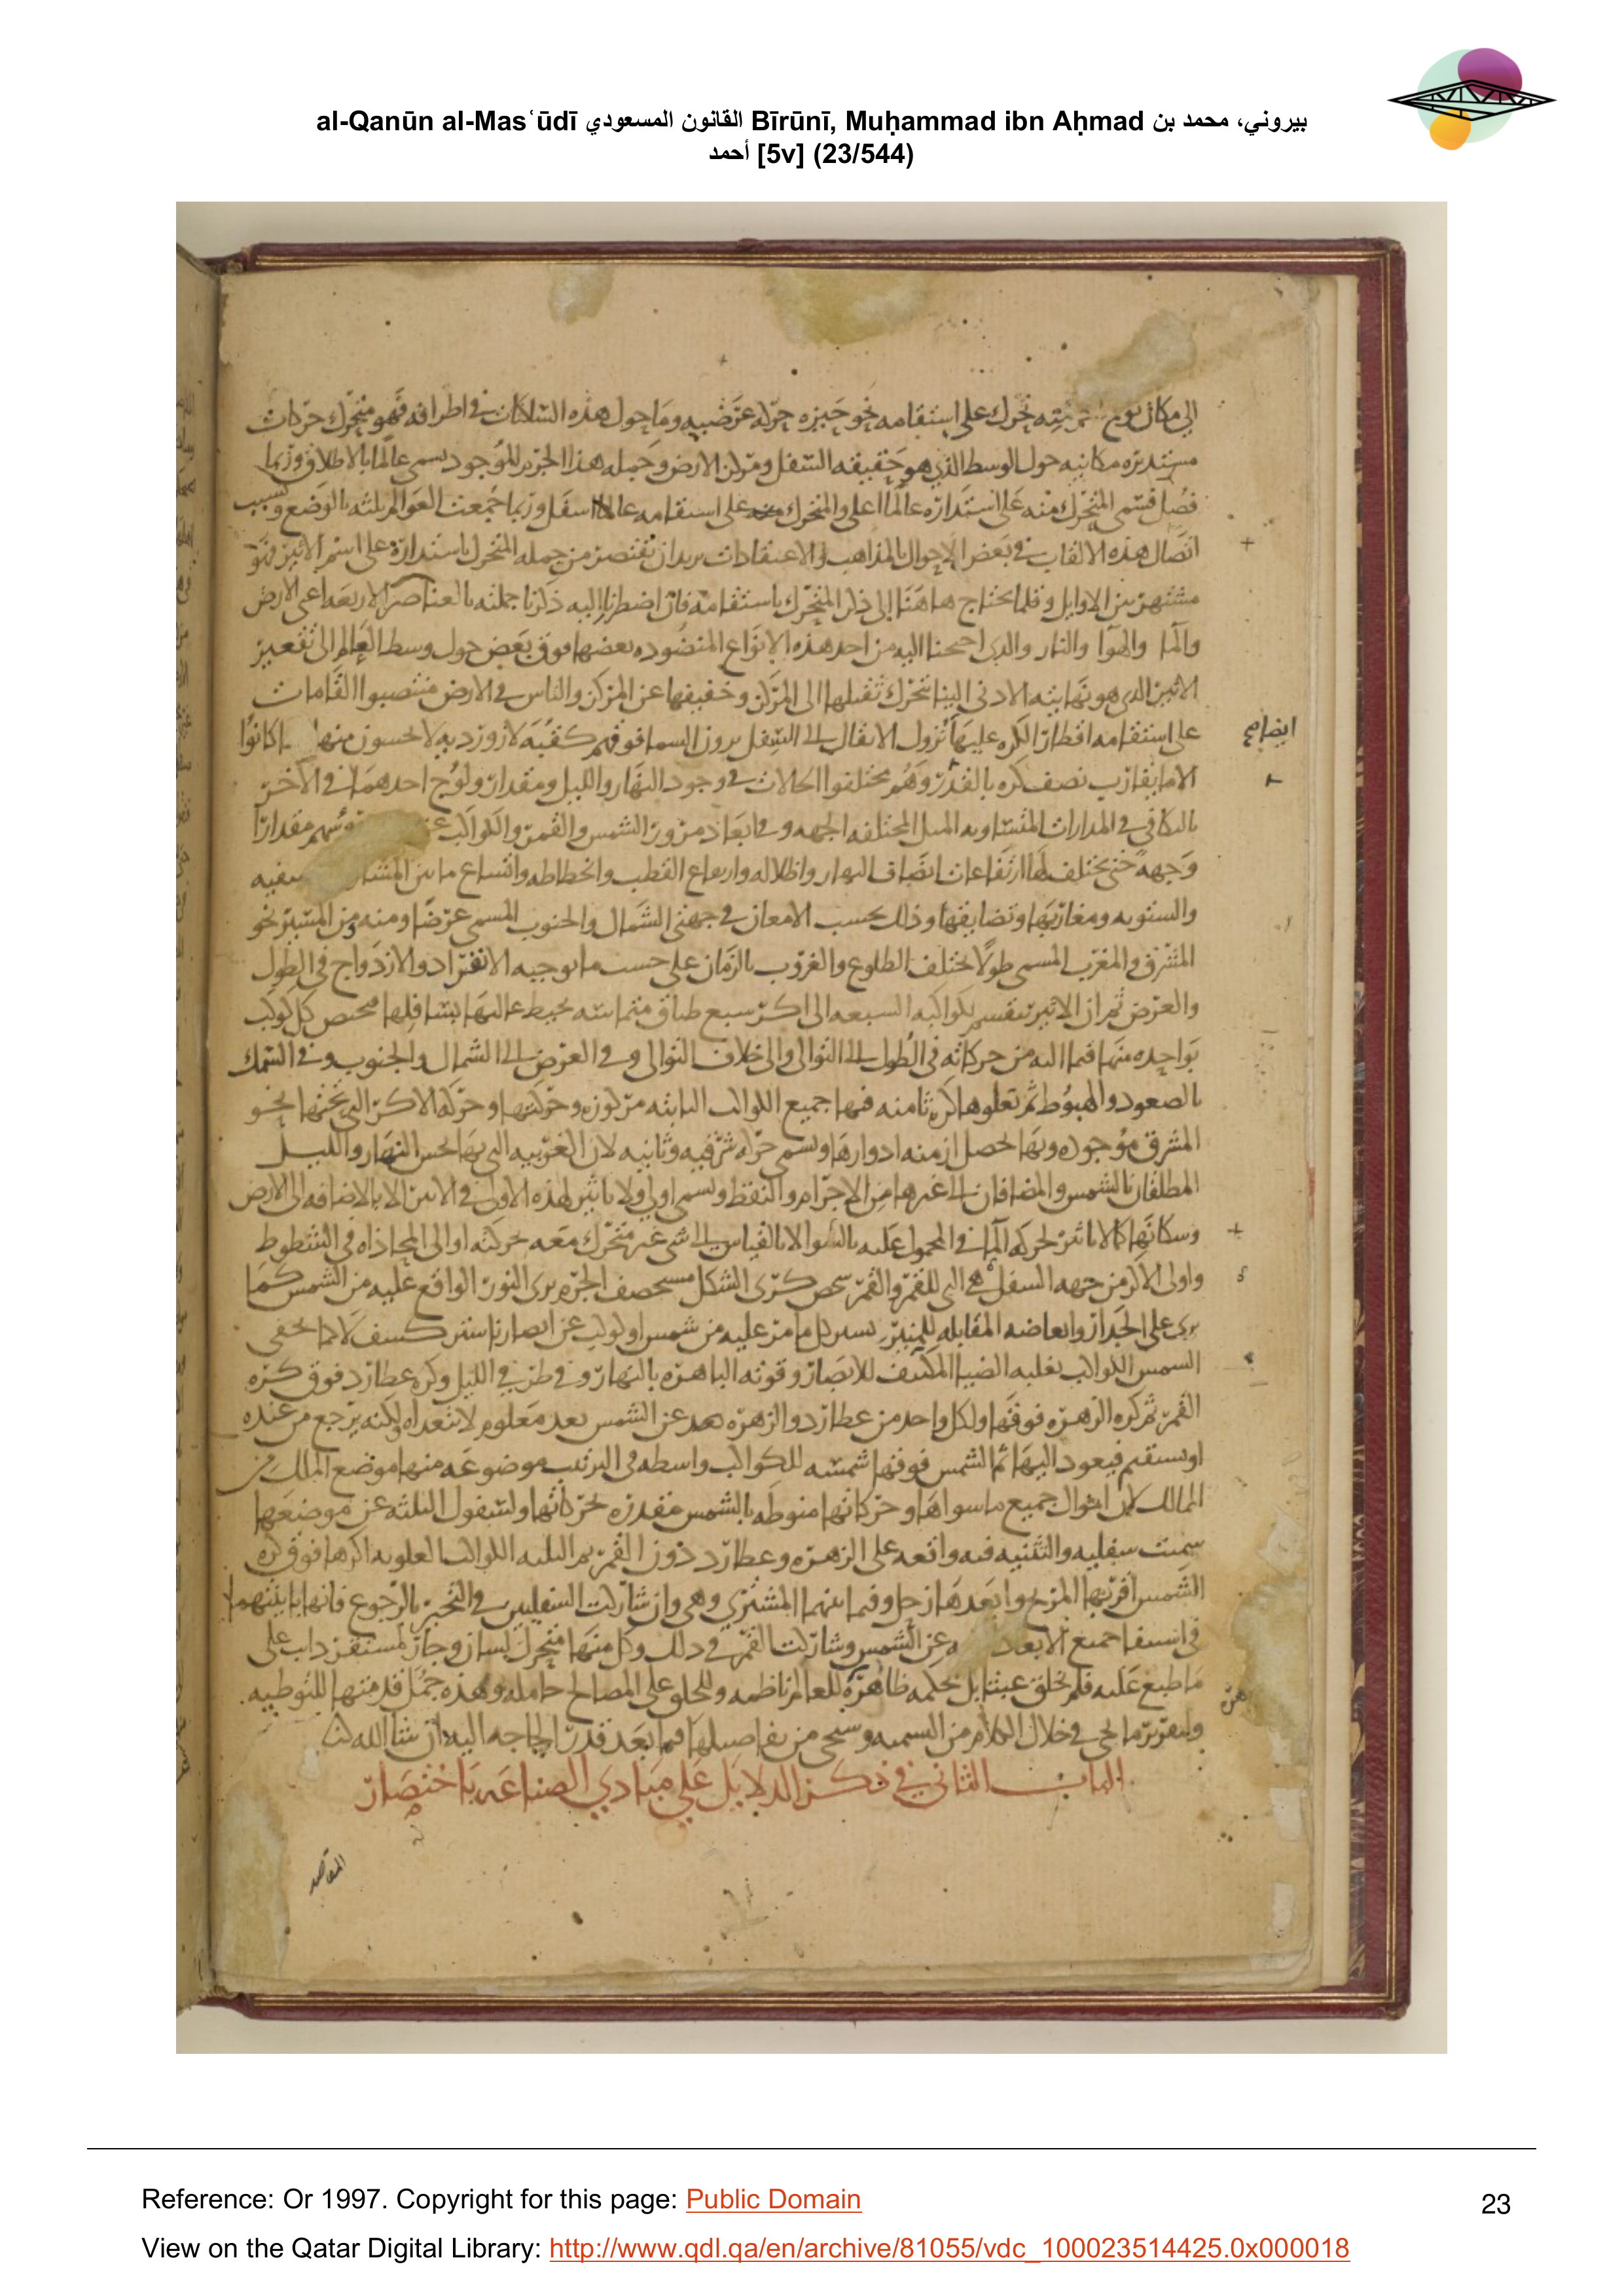 al-Qanūn al-Masʿūdī القانون المسعودي Bīrūnī, Muḥammad ibn Aḥmad بيروني، محمد بن
أحمد [5v] (23/544)
الى مكان تحرك على استقامه نحو حيزه حركه عرضيه وما حول هذه الساكنات في اطرافه فهو متحرك حركات
مستديره مكانيه حول الوسط الذي هو حقيقه السفل ومركز الارض وجمله هذا الجرم الموجود تسمى عالما بالاطلاق وربما
فصل فسمى المتحرك منه على استداره عالما اعلى والمتحرك على استقامه عالما اسفل وربما جمعت العوالم بلثه بالوضع وبسبب
اتصال هذه الالقاب في بعض الاحوال بالمذاهب والاعتقادات نريد ان نقتصر من جمله المتحرك باستداره على اسم الاثير فهو
مشتهر بين الاوايل وقلما يحتاج هاهنا الى ذكر المتحرك باستقامه فان اضطررنا اليه ذكرنا جملته بالعناصر الاربعه اعني الارض
والما والهوا والنار والذي احتجنا اليه من احد هذه الانواع المنضوده بعضها فوق بعض حول وسط العالم الى تقعير
الاثير الذي هو نهايته الادنى الينا تحرك ثقيلها الى المركز وخفيفها عن المركز والناس في الارض منتصبوا القامات
على استقامه اقطار الكره عليها نزول الاثقال الى السفل يرون السما فوقهم كقبه لازورديه لا يحسون منها كانوا
ايضا صح
الا ما يقارب نصف كره بالقدر وهم مختلفوا الحالات في وجود النهار والليل ومقدار ولوج احدهما في الاخر
بالتكافي في المدارات المتساويه الميل المختلفه الجهه وفي ابعاد ممر الشمس والقمر والكواكب رؤسهم مقدارا
وجهه حتى يختلف لها ارتفاعات انصاف النهار واظلاله وارتفاع القطب وانحطاطه واتساع ما بين
والشتويه ومغاربها وتضايقها وذلك بحسب الامعان في جهتي الشمال والجنوب المسمى عرضا ومنه من المسير نحو
المشرق والمغرب المسمى طولا يختلف الطلوع والغروب بالزمان على حسب ما توجبه الانفراد والازدواج في الطول
والعرض ثم ان الاثير ينقسم بكواكبه السبعه الى اكر سبع طباق متماسه يحيط عاليها بسافلها مختص كل كوكب
بواحده منها فيما اليه من حركاته في الطول الى التوالي والى خلاف التوالي وفي العرض الى الشمال والجنوب وفي السمك
بالصعود والهبوط ثم تعلوها كره ثامنه فيها جميع الكواكب الثابته مركوزه وحركتها وحركه الاكر التي تحتها نحو
المشرق موجوده وبها تحصل ازمنه ادوارها وتسمى حركه شرقيه وثانيه لان الغربيه التي بها نحس النهار والليل
المطلقان بالشمس والمضافان الى غيرها من الاجرام والنقط وتسمى اولى ولا تاثير لهذه الاولى في الاثير الا بالاضافه الى الارض
وسكانها كالا تاثير لحركه الما في المحمول عليه بالسوا الا بالقياس الى شي غير متحرك معه حركته او الى المحاذاه في الشطوط
واولى الاكر من جهه السفل هي التي للقمر والقمر شخص كري الشكل مستحصف الجرم يرى النور الواقع عليه من الشمس كما
يرى على الجدار المقابله للمنير يستر كل ما مر عليه من شمس او كوكب عن ابصارنا ستر كسف لا كما تخفى
الشمس الكواكب بغلبه الضيا المكتنف للابصار وقوته الباهره بالنهار وفي طرفي الليل وكره عطارد فوق كره
القمر ثم كره الزهره فوقها ولكل واحد من عطارد والزهره بعد عن الشمس بعد معلوم لا يتعداه لكنه يرجع من عنده
او يستقيم فيعود اليها ثم الشمس فوقها شمسه للكواكب واسطه في الترتيب موضوعه منها موضع الملك من
الممالك لان احوال جميع ما سواها وحركاتها منوطه بالشمس مقدره بحركاتها ولسفول الثلثه عن موضعها
سميت سفليه والتثنيه فيه واقعه على الزهره وعطارد دون القمر ثم الثلثه الكواكب العلويه اكرها فوق كره
الشمس اقربها المريخ وابعدها زحل وفيما بينهما المشتري وهي وان شاركت السفليين في التحير بالرجوع فانها باينتهما
في جميع الابعاد عن الشمس وشاركت القمر في ذلك وكل منها متحرك لسان وجار لمستقر داب على
ما طبع عليه فلم يخلق عبثا بل بحكمه ظاهره للعالم ناظمه وللخلق على المصالح حامله وهذه جمل قدمتها للتوطيه
ولتقرير ما يجي في خلال الكلام من التسميه وسيجي من تفاصيلها فيما بعد قدر الحاجه اليه ان شا الله
الباب الثاني في ذكر الدلايل على مبادي الصناعه باختصار
Reference: Or 1997. Copyright for this page: Public Domain
23
View on the Qatar Digital Library: http://www.qdl.qa/en/archive/81055/vdc_100023514425.0x000018